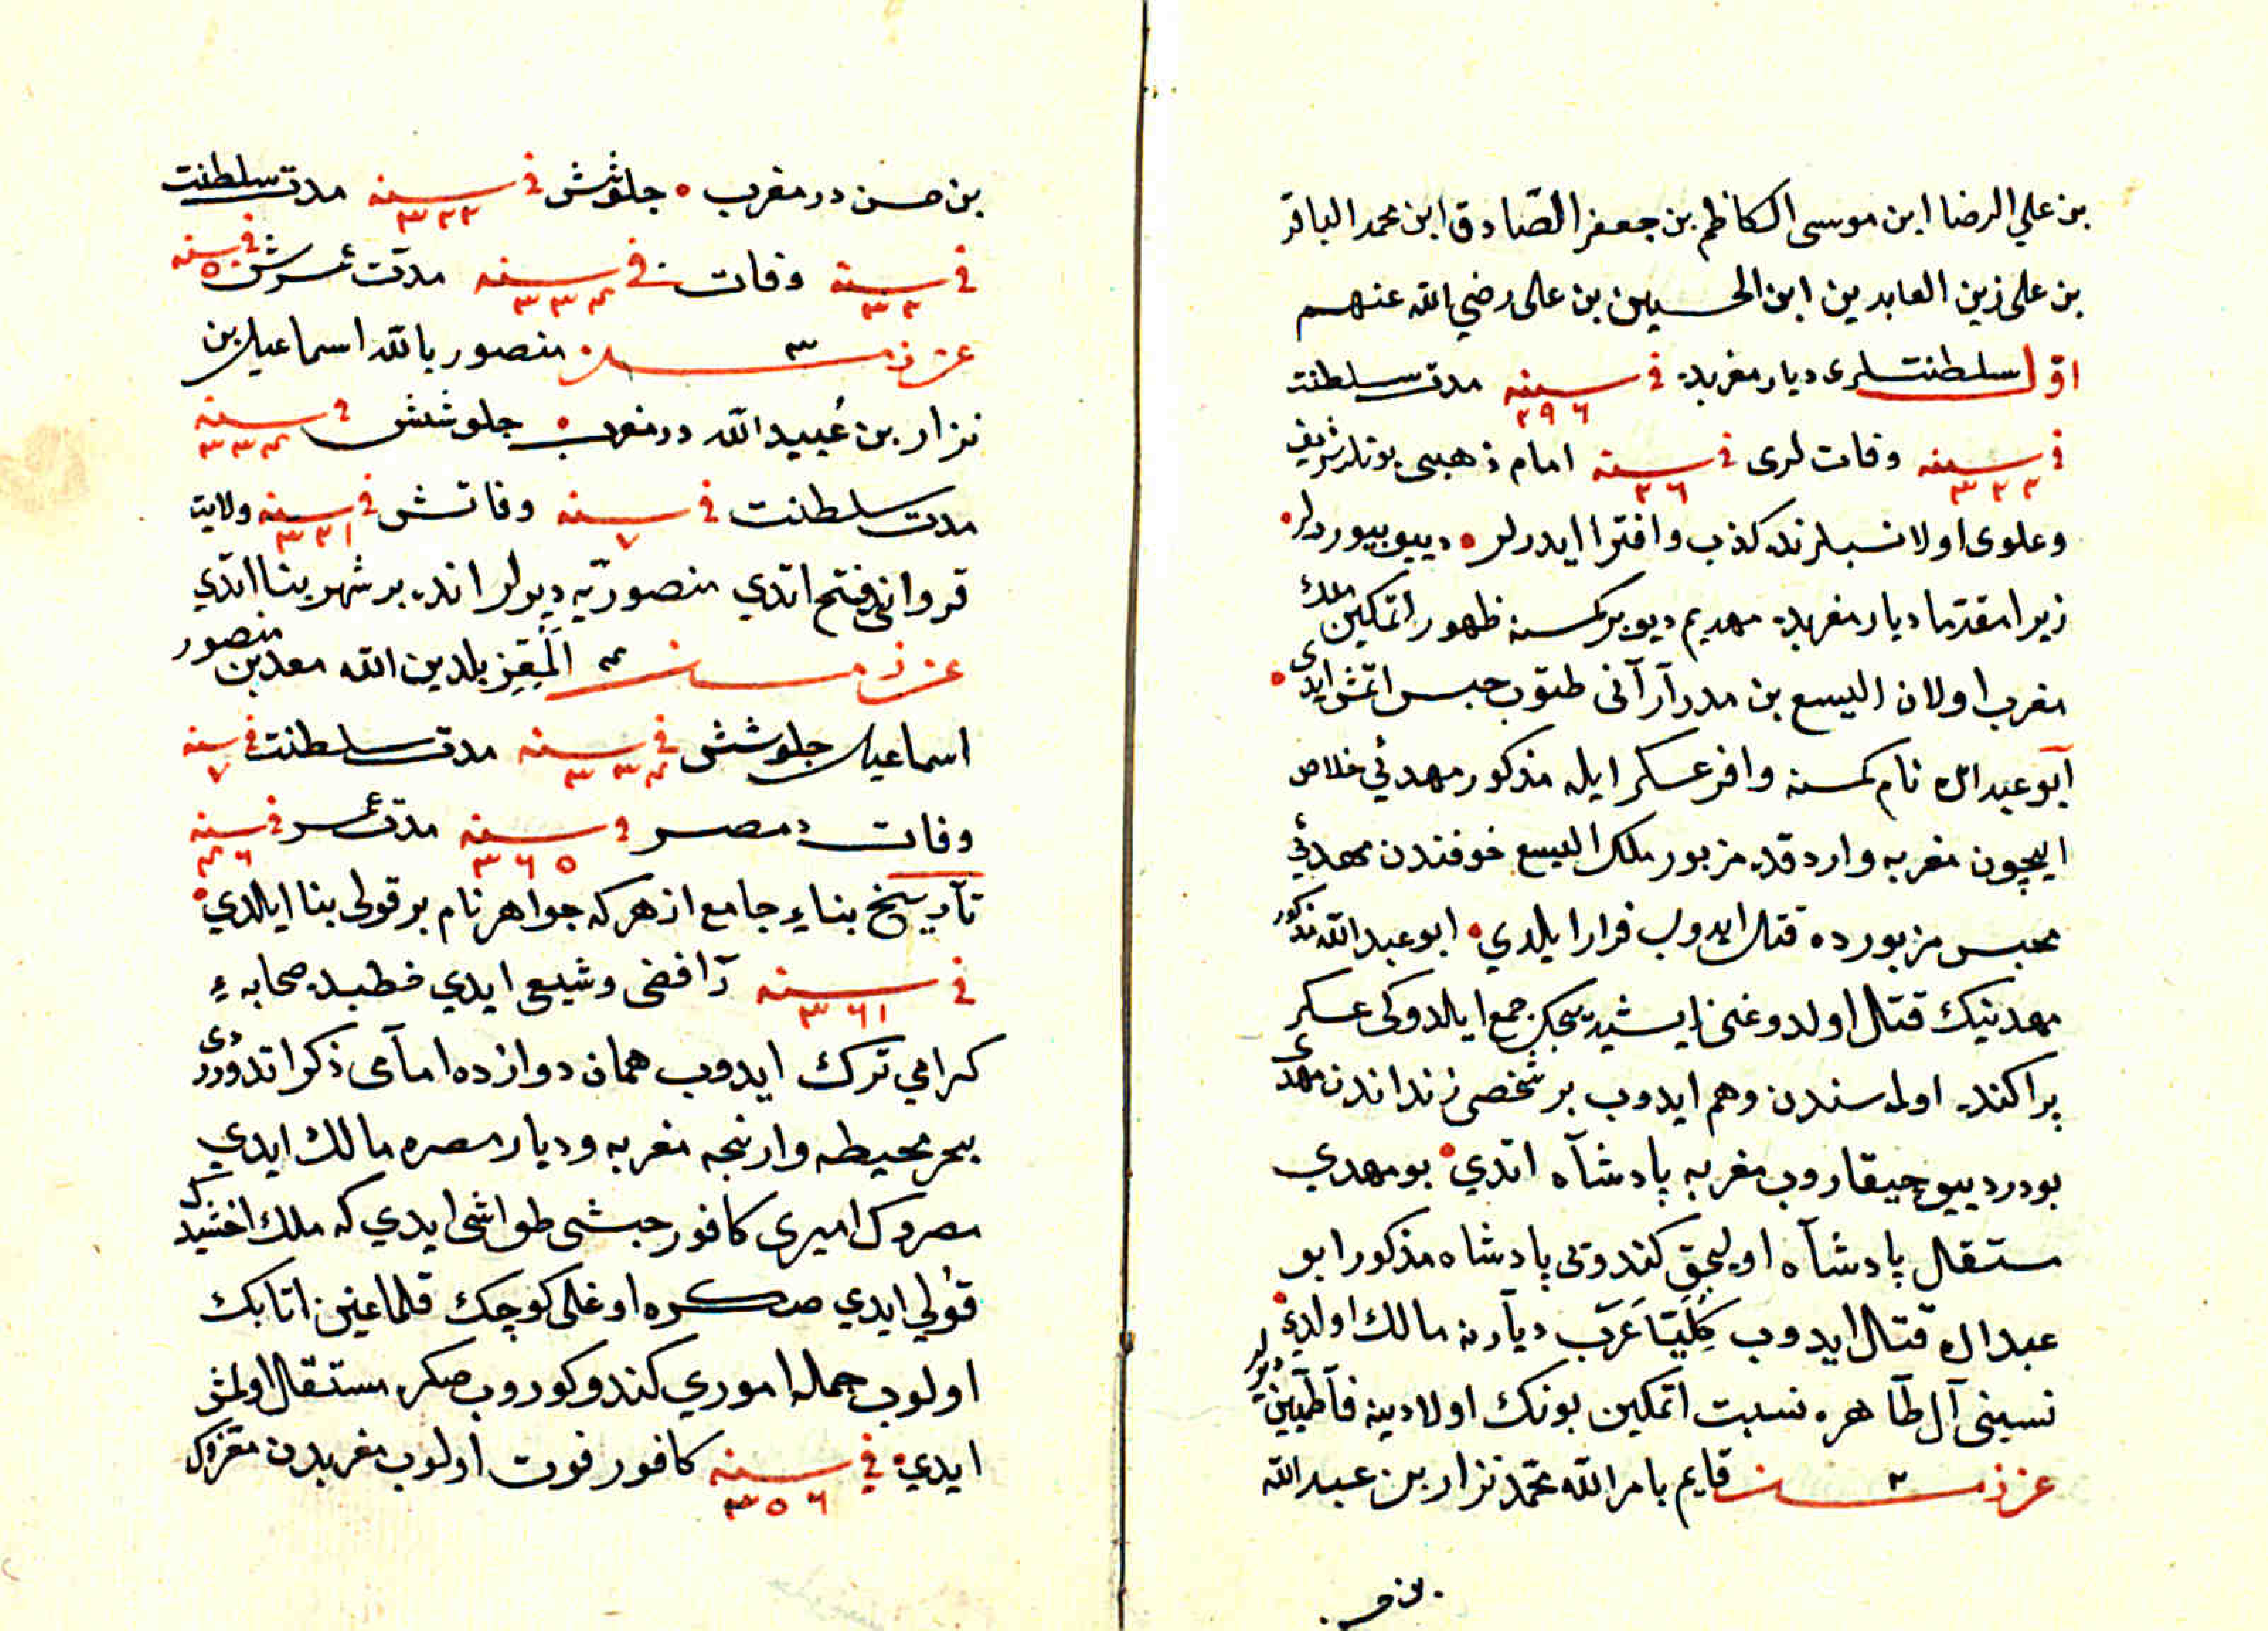 بن علي الرضا ابن موسى الكاظم بن جعفر الصّادق ابن محمد الباقر
بن على زين العابدين ابن الحسين بن على رضي الله عنهم
اوّل سلطنتلرى ديار مغربده فى سنه ٢٩٦ مدت سلطنت
فى سنه ٣٢٢ وفات لرى فى سنه ٢٦ امام ذهبى بونلر شريف
وعلوى اولا نسبلرنده كذب وافترا ايدرلر دييو بيوردلر
زيرا مقدّما ديار مغربده مهديم ديو بر كمسنه ظهور اتمكين ملك
مغرب اولان اليسع بن مدرآر آنى طتوب حبس اتمش ايدى
آبو عبد الله نام كمسنه وافر عسكر ايله مذكور مهدئي خلاص
ايچون مغربه واردقده مزبور ملك اليسع خوفندن مهدئي
محبس مزبورده قتل ايدوب فرار ايلدي ابو عبد الله مذكور
مهدينك قتل اولدوغنى ايشيديجك جمع ايلدوكى عسكر
پراكنده اولمسندن وهم ايدوب بر شخصى زنداندن مهدى
بودر دييو چيقاروب مغربه پادشآه اتدي بو مهدي
مستقل پادشآه اوليجق كندوى پادشاه مذكور ابو
عبد الله قتل ايدوب كليّتا عرب ديآرنه مالك اولدي
نسبنى آل طآهره نسبت اتمكين بونك اولادينه فآطميين ديرلر
عزيز مسنر ٢ قايم بامر الله محمّد نزار بن عبد الله
بن ح
بن حسن در مغرب جلوسش فى سنه ٣٢٢ مدت سلطنت
فى سنه ٣٢ وفات فى سنه ٣٣٤ مدّت عمرش فى سنه ٥
٣ منصور بالله اسماعيل بن
نزار بن عُبيد الله در مغرب جلوسش فى سنه ٣٣٤
مدت سلطنت فى سنه ٧ وفاتش فى سنه ٣٢١ ولايت
قروانى فتح اتدي منصوريّه ديرلر انده بر شهر بنا اتدي
٤ المعز بلدين الله معد بن منصور
اسماعيل جلوسش فى سنه ٣٣٤ مدت سلطنت فى سنه ٧
وفات در مصر فى سنه ٣٦٥ مدت عمر فى سنه ٤٦
تآريخ بناء جامع ازهر كه جواهر نام بر قولى بنا ايلدي
فى سنه ٣٦١ رآفضى وشيعى ايدي خطبده صحابهٔ
كرامي ترك ايدوب همان دوازده امآمى ذكر اتدوردى
بحر محيطه وارنجه مغربه وديار مصره مالك ايدي
مصروك اميرى كافور حبشى طواشى ايدي كه ملك اخشيدك
قولي ايدي صكره اوغلى كوچك قلماغين اتابك
اولوب جمله اموري كندو كوروب صكره مستقل اولمش
ايدي فى سنه ٣٥٦ كافور فوت اولوب مغربدن معزوك